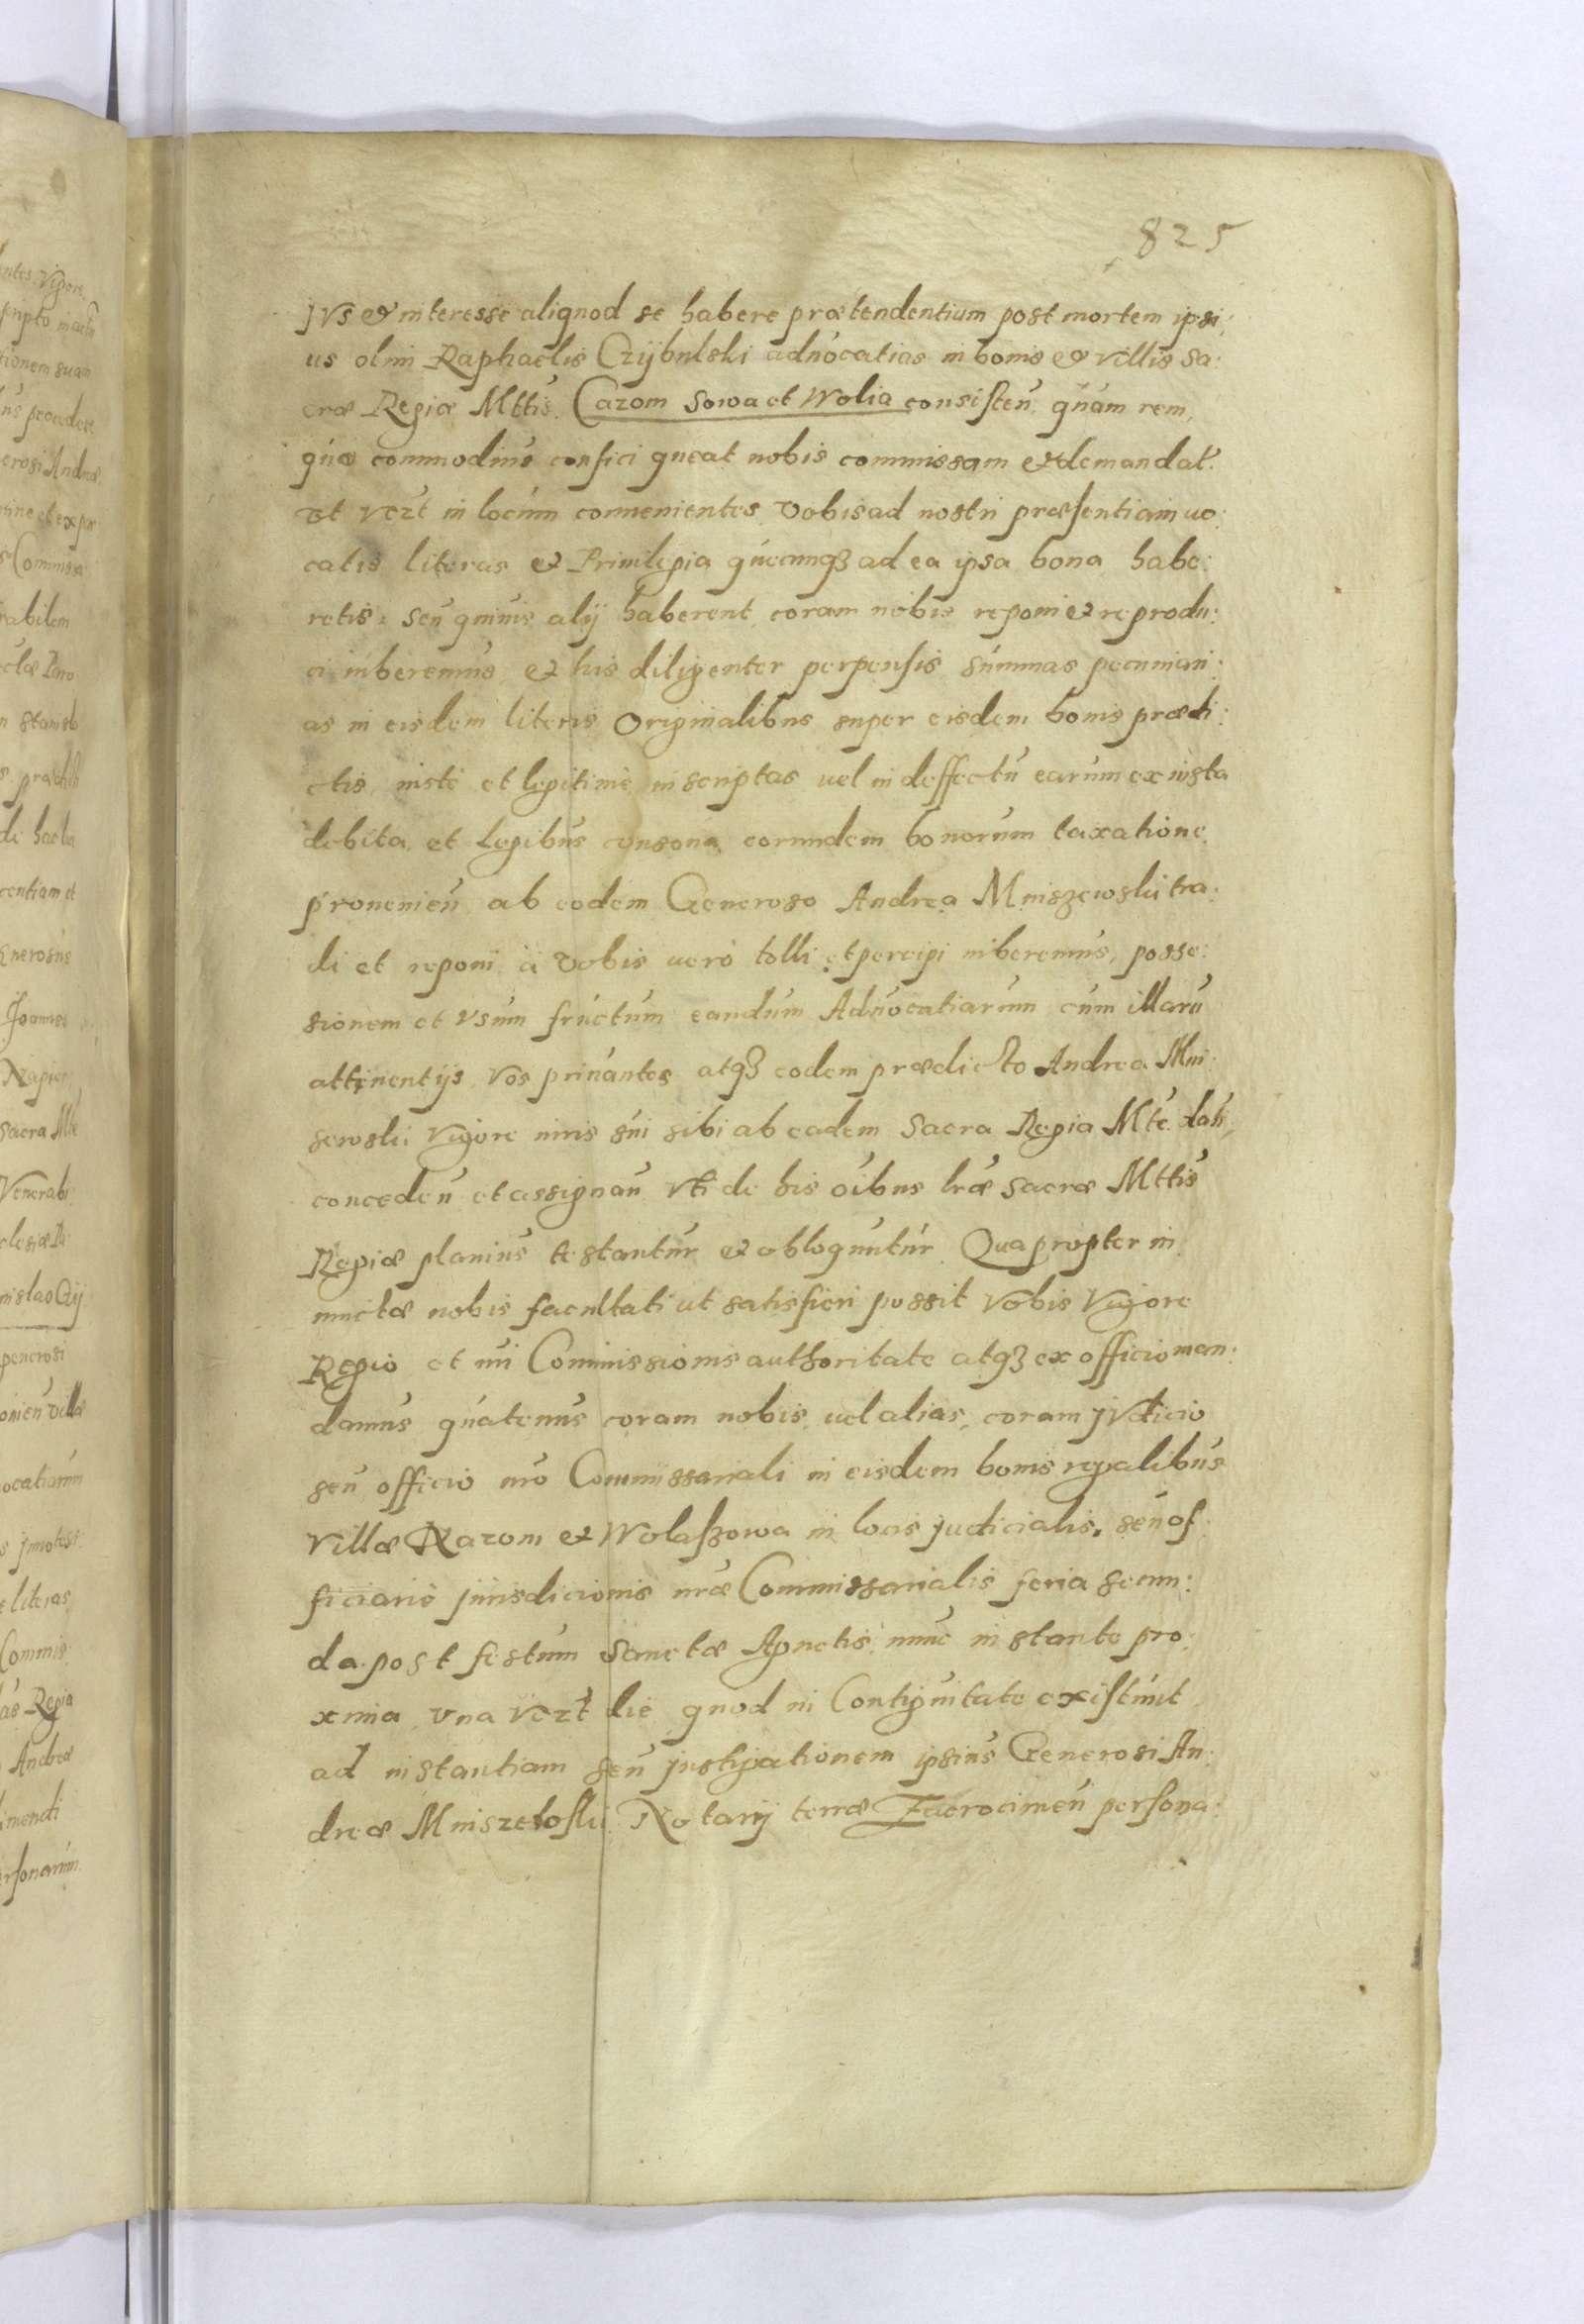 825
jvs et interesse aliquod se habere prætendentium post mortem ipsi:
us olim Raphaelis Czÿbulski aduocatias in bonis et villis Sa:
cræ Regiæ Mttis. Cazom Sowa et Wolia consisteñ. quam rem,
quæ commodius confici queat nobis commissam et demandat.
vt vezt in locum conuenientes vobis ad nostri præsentiam uo:
catis literas et Priuilegia quæcunqȝ ad ea ipsa bona habe:
retis, seu quiuis alÿ haberent coram nobis reponi et reprodu:
ci iuberemus et his diligenter perpensis summas pecuniari:
as in eisdem literis Originalibus super eisdem bonis prædi:
ctis iuste et legitime inscriptas uel in deffectu earum ex iusta
debita et Legibus consona eorundem bonorum taxatione
proueuieñ ab eodem Generoso Andrea Mniszewski tra:
di et reponi a vobis uero tolli et percipi iuberemus, posse:
sionem et vsum fructum earundum Aduocatiarum cum illarũ
attinentÿs vos priuantes atqȝ eodem prædicto Andrea Mni:
sewski vigore iuris sui sibi ab eadem Sacra Regia Mte. dati,
concedeñ et assignañ vti de his oĩbus lræ Sacræ Mttis
Regiæ planius testantur et obloquntur. Quapropter in
iunctæ nobis facultati ut satisfieri possit vobis vigore
Regio et nri Commissionis authoritate atqȝ ex officio man:
damus quatenus coram nobis uel alias, coram jvdicio
seu officio nro Commissariali in eisdem bonis regalibus
Villæ Nazom et Wolaszowa in locis judicialis, seu of:
ficiario jurisdicionis nræ Commissarialis feria secun:
da post festum Sanctæ Agnetis nunc instante pro:
xima vna vezt die quod in Contiguitate existunt
ad instantiam seu justigationem ipsius Generosi An:
dreæ Mniszewski Notarÿ terræ Zacrocimeñ persona: